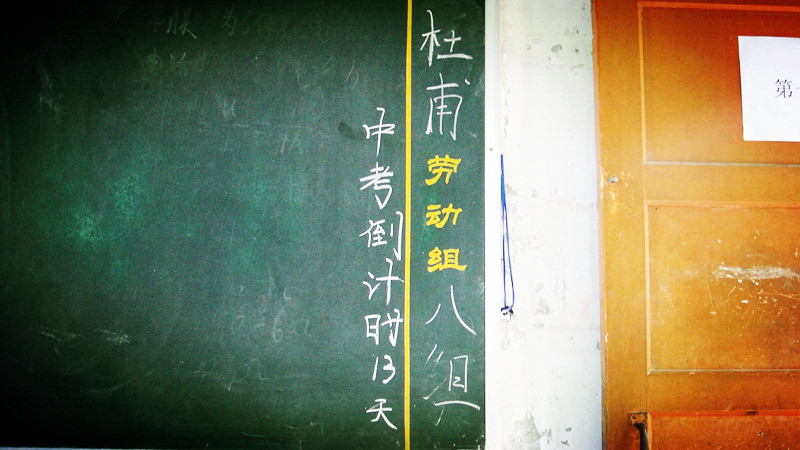 杜甫劳动组八组
中考倒计时13天
第